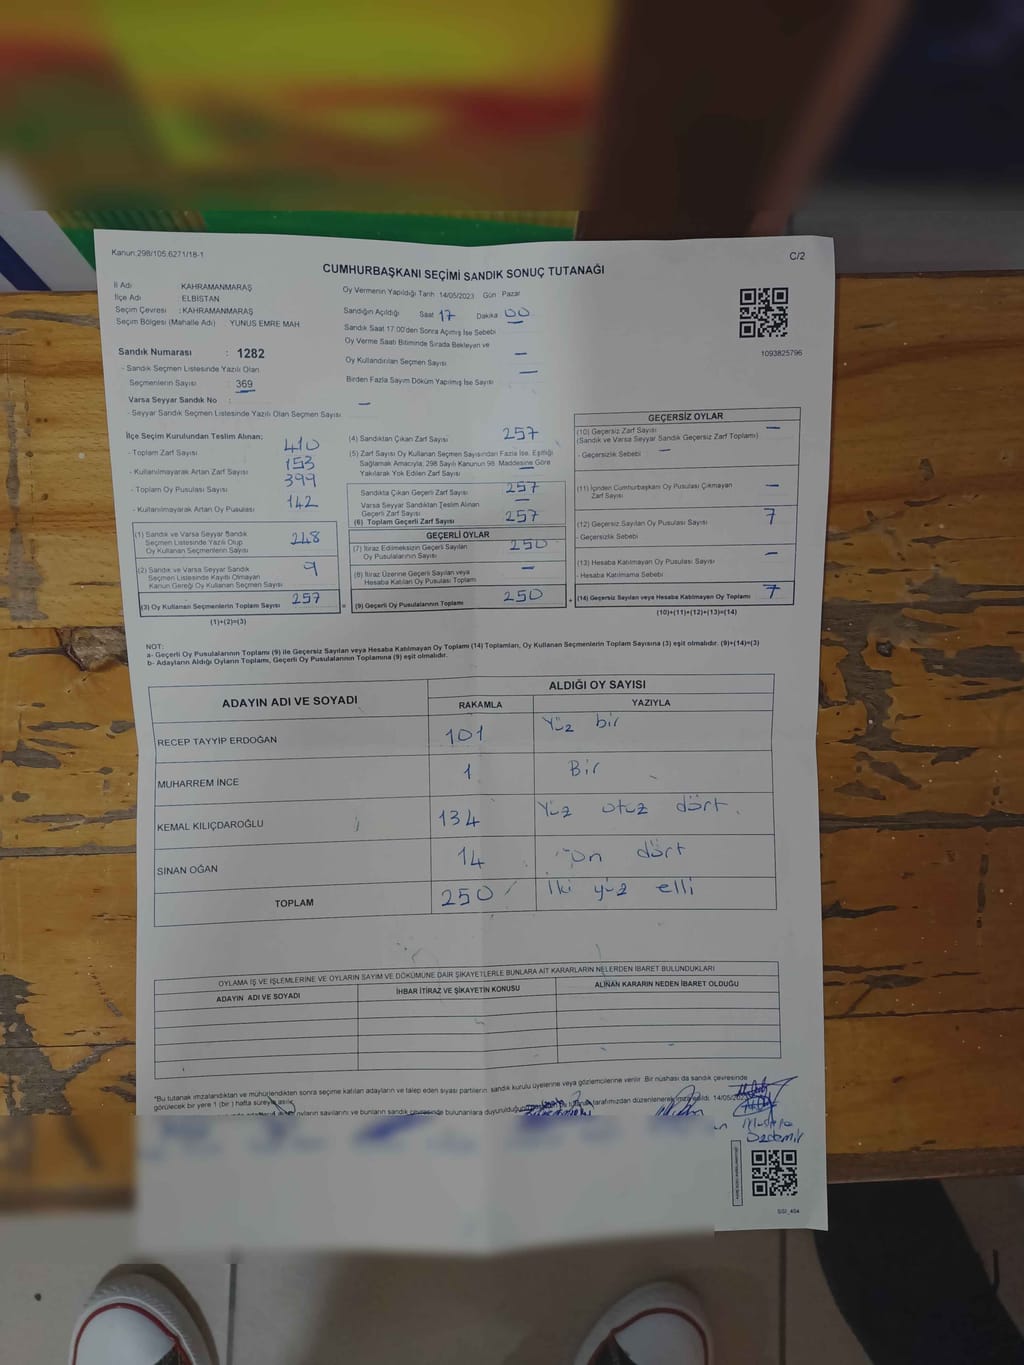 Kanun:298/105.6271/18-1
C/2
CUMHURBAŞKANI SEÇİMİ SANDIK SONUÇ TUTANAĞI
İl Adı KAHRAMANMARAŞ
İlçe Adı ELBİSTAN
Seçim Çevresi : KAHRAMANMARAŞ
Seçim Bölgesi (Mahalle Adı) YUNUS EMRE MAH
Oy Vermenin Yapıldığı Tarih 14/05/2023 Gün Pazar
Sandığın Açıldığı Saat 17 Dakika 00
Sandık Saat 17.00'den Sonra Açılmış İse Sebebi
Oy Verme Saati Bitiminde Sırada Bekleyen ve
Oy Kullandırılan Seçmen Sayısı —
Birden Fazla Sayım Döküm Yapılmış İse Sayısı —
1093825796
Sandık Numarası : 1282
- Sandık Seçmen Listesinde Yazılı Olan
Seçmenlerin Sayısı : 369
Varsa Seyyar Sandık No —
- Seyyar Sandık Seçmen Listesinde Yazılı Olan Seçmen Sayısı
İlçe Seçim Kurulundan Teslim Alınan;
- Toplam Zarf Sayısı 410
- Kullanılmayarak Artan Zarf Sayısı 153
- Toplam Oy Pusulası Sayısı 399
- Kullanılmayarak Artan Oy Pusulası 142
(1) Sandık ve Varsa Seyyar Sandık
Seçmen Listesinde Yazılı Olup
Oy Kullanan Seçmenlerin Sayısı 248
(2) Sandık ve Varsa Seyyar Sandık
Seçmen Listesinde Kayıtlı Olmayan
Kanun Gereği Oy Kullanan Seçmen Sayısı 9
(3) Oy Kullanan Seçmenlerin Toplam Sayısı 257
(1)+(2)=(3)
(4) Sandıktan Çıkan Zarf Sayısı 257
(5) Zarf Sayısı Oy Kullanan Seçmen Sayısından Fazla İse, Eşitliği
Sağlamak Amacıyla, 298 Sayılı Kanunun 98. Maddesine Göre
Yakılarak Yok Edilen Zarf Sayısı —
Sandıkta Çıkan Geçerli Zarf Sayısı 257
Varsa Seyyar Sandıktan Teslim Alınan
Geçerli Zarf Sayısı —
(6) Toplam Geçerli Zarf Sayısı 257
GEÇERLİ OYLAR
(7) İtiraz Edilmeksizin Geçerli Sayılan
Oy Pusulalarının Sayısı 250
(8) İtiraz Üzerine Geçerli Sayılan veya
Hesaba Katılan Oy Pusulası Toplamı —
= (9) Geçerli Oy Pusulalarının Toplamı 250
GEÇERSİZ OYLAR
(10) Geçersiz Zarf Sayısı
(Sandık ve Varsa Seyyar Sandık Geçersiz Zarf Toplamı) —
- Geçersizlik Sebebi —
(11) İçinden Cumhurbaşkanı Oy Pusulası Çıkmayan
Zarf Sayısı —
(12) Geçersiz Sayılan Oy Pusulası Sayısı 7
- Geçersizlik Sebebi
(13) Hesaba Katılmayan Oy Pusulası Sayısı —
- Hesaba Katılmama Sebebi
+ (14) Geçersiz Sayılan veya Hesaba Katılmayan Oy Toplamı 7
(10)+(11)+(12)+(13)=(14)
NOT:
a- Geçerli Oy Pusulalarının Toplamı (9) ile Geçersiz Sayılan veya Hesaba Katılmayan Oy Toplamı (14) Toplamları, Oy Kullanan Seçmenlerin Toplam Sayısına (3) eşit olmalıdır. (9)+(14)=(3)
b- Adayların Aldığı Oyların Toplamı, Geçerli Oy Pusulalarının Toplamına (9) eşit olmalıdır.
ADAYIN ADI VE SOYADI
ALDIĞI OY SAYISI
RAKAMLA YAZIYLA
RECEP TAYYİP ERDOĞAN 101 Yüz bir
MUHARREM İNCE 1 Bir
KEMAL KILIÇDAROĞLU 134 Yüz otuz dört
SİNAN OĞAN 14 on dört
TOPLAM 250 İki yüz elli
OYLAMA İŞ VE İŞLEMLERİNE VE OYLARIN SAYIM VE DÖKÜMÜNE DAİR ŞİKAYETLERLE BUNLARA AİT KARARLARIN NELERDEN İBARET BULUNDUKLARI
ADAYIN ADI VE SOYADI İHBAR İTİRAZ VE ŞİKAYETİN KONUSU ALINAN KARARIN NEDEN İBARET OLDUĞU
"Bu tutanak imzalandıktan ve mühürlendikten sonra seçime katılan adayların ve talep eden siyasi partilerin, sandık kurulu üyelerine veya gözlemcilerine verilir. Bir nüshası da sandık çevresinde
görülecek bir yere 1 (bir) hafta süreyle asılır.
oyların sayılarını ve bunların sandık çevresinde bulunanlara duyurulduğunu tarafımızdan düzenlenerek imza edildi. 14/05/
Özdemir
SGI_404